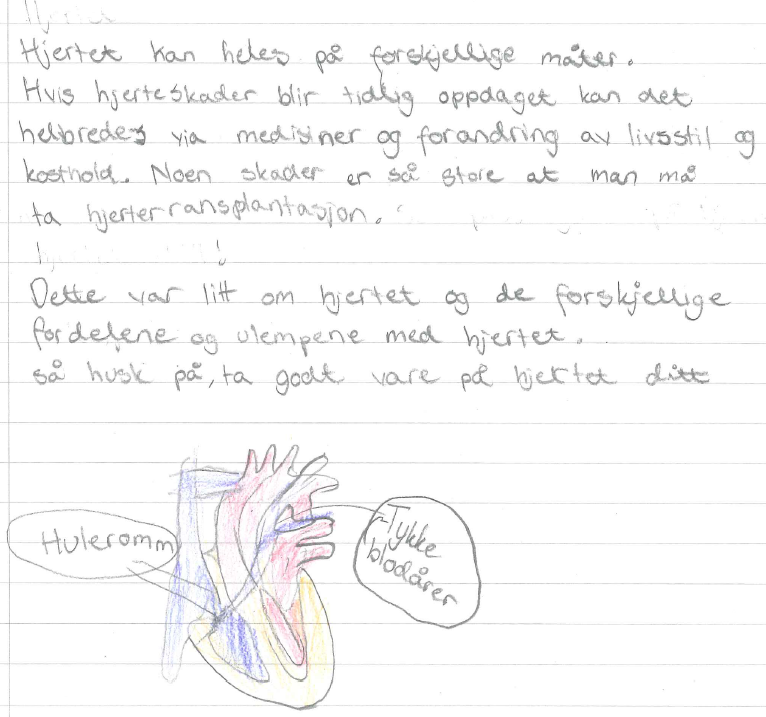 Hjertet kan heles på forskjellige måter.
Hvis hjerteskader blir tidlig oppdaget kan det
helbredes via medisiner og forandring av livsstil og
kosthold. Noen skader er så store at man må
ta hjerterransplantasjon.
Dette var litt om hjertet og de forskjellige
fordelene og ulempene med hjertet.
så husk på, ta godt vare på hjertet ditt
Huleromm
Tykke
blodårer